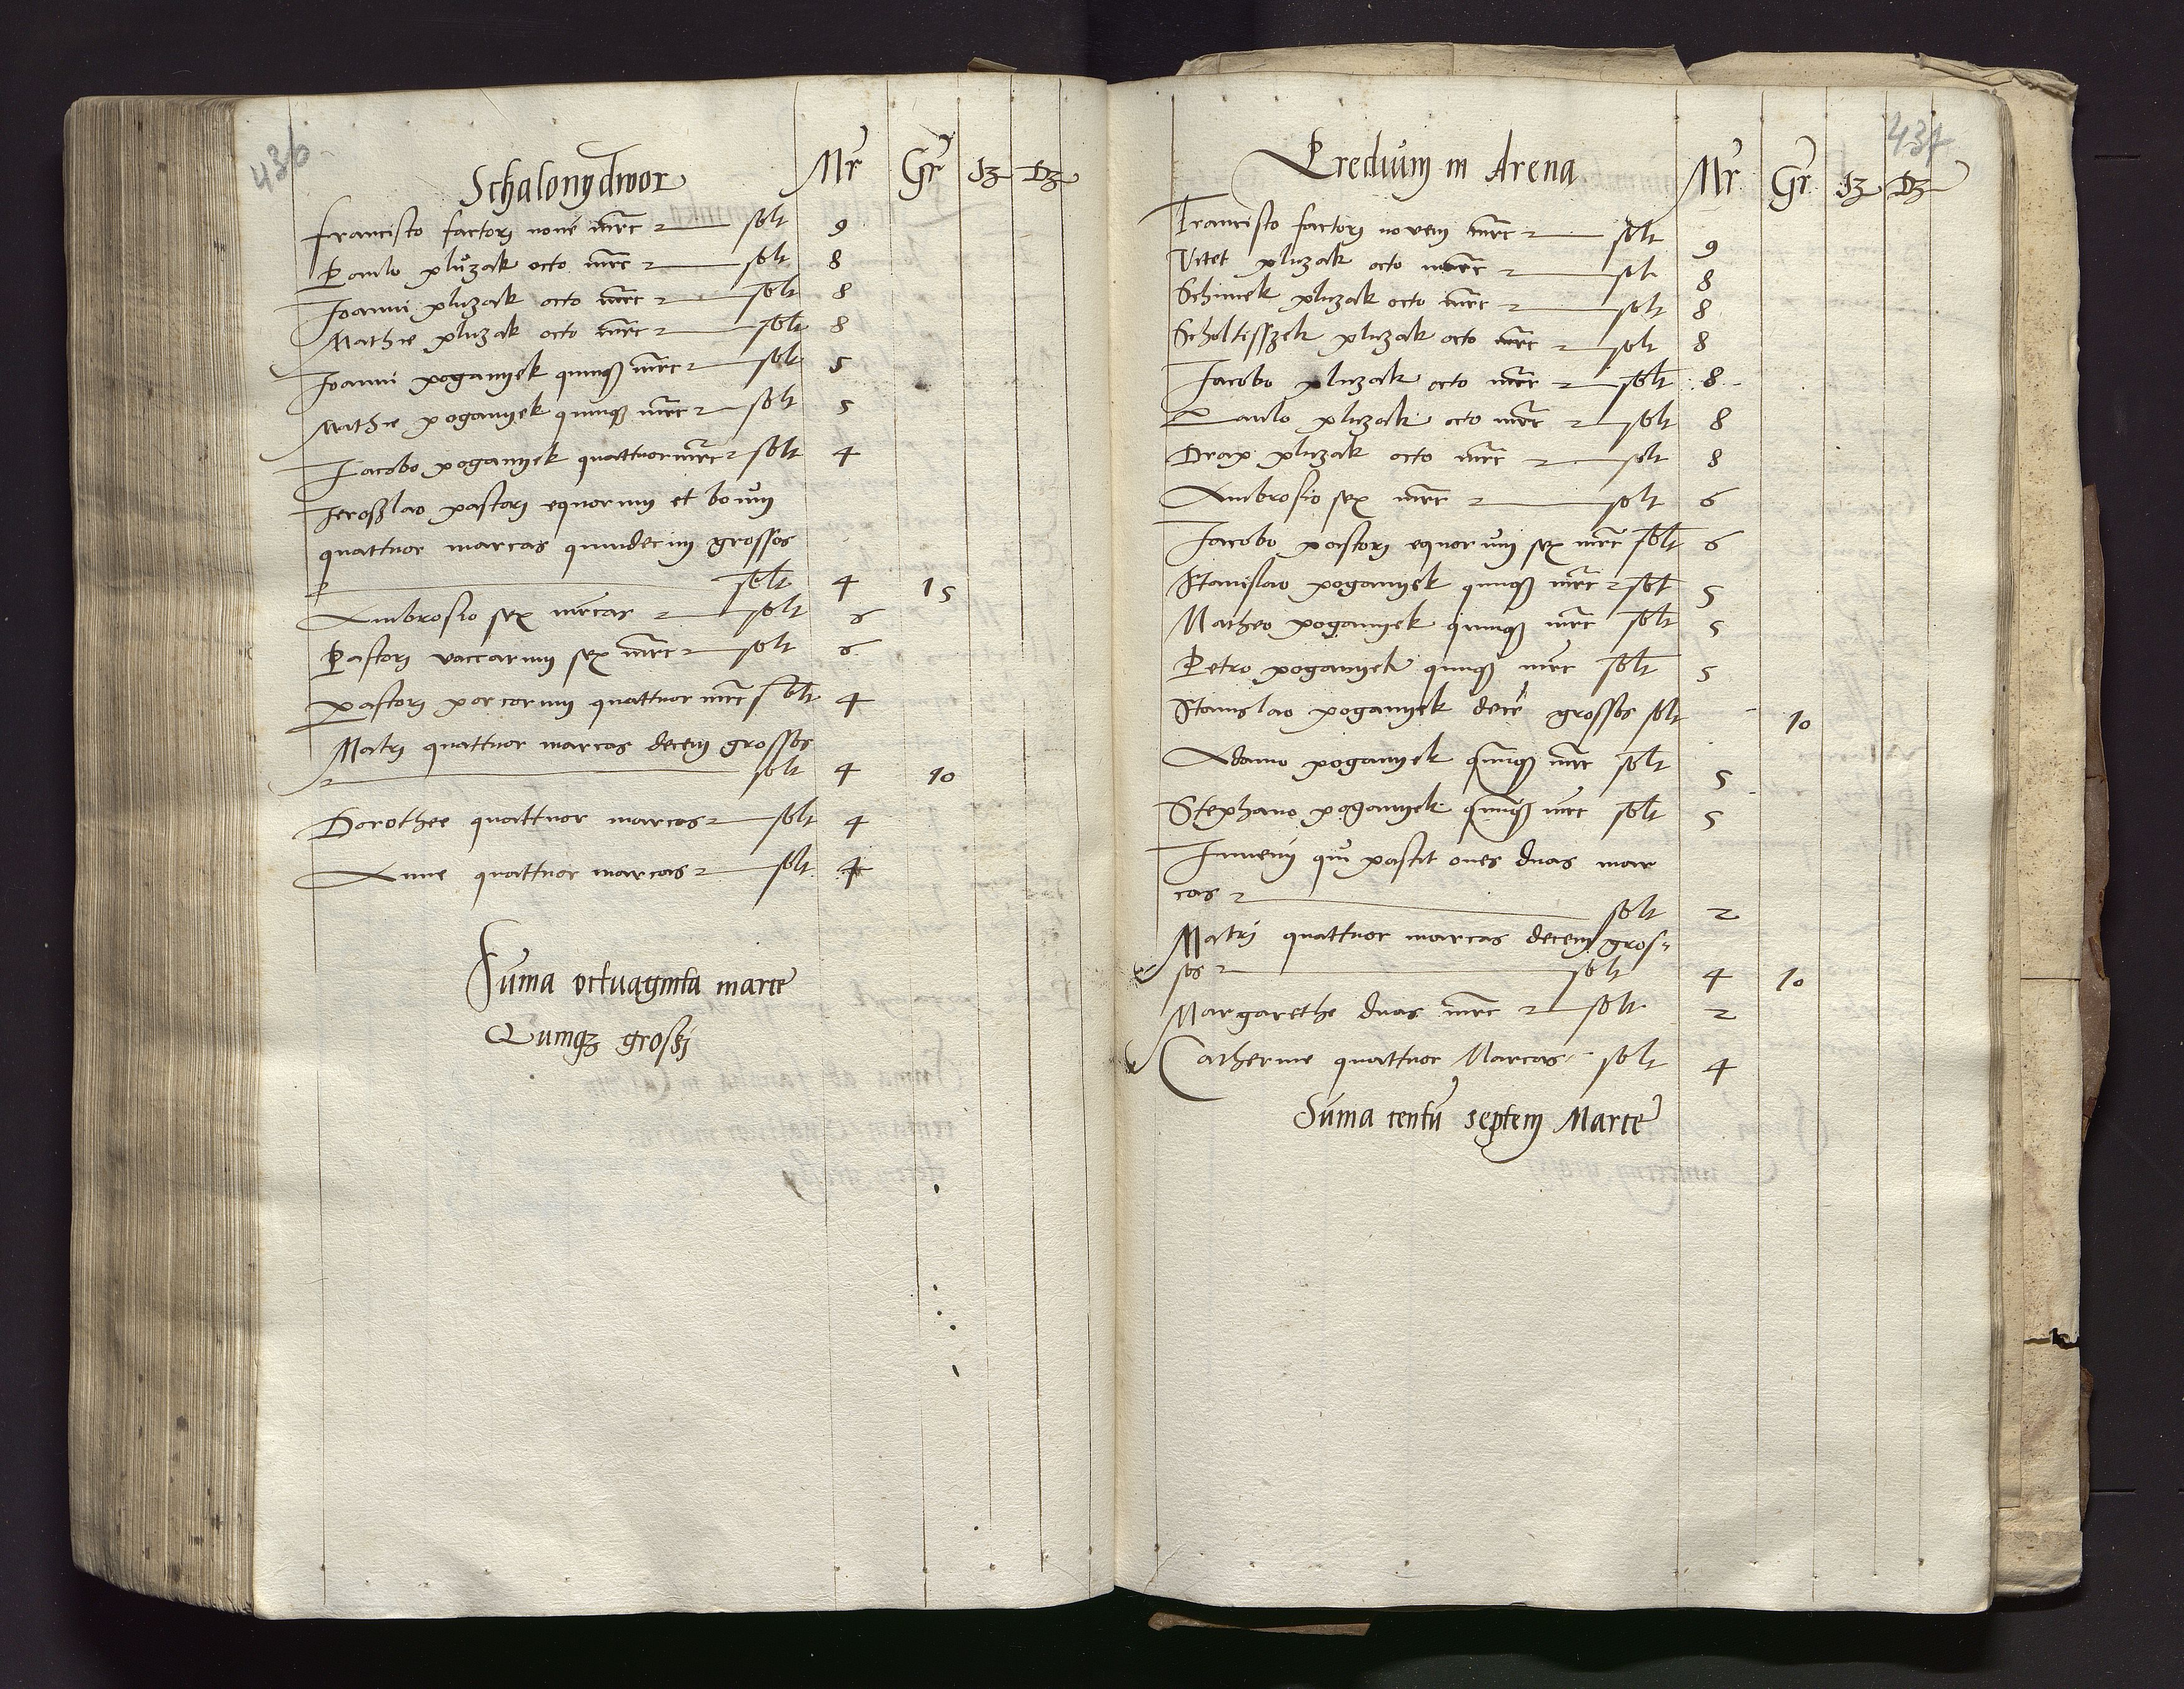 436
Schalonydwor Mr Gr Sz Dz
Francisco factori nove mrc solt 9
Paulo pluzak octo mrc solt 8
Joanni pluzak octo mrc solt 8
Mathie pluzak octo mrc solt 8
Joanni poganyek quinqz mrc solt 5
Mathie poganyek quinqz mrc solt 5
Jacobo poganyek quattuor mrc solt 4
Jeroslao pastori equorum et bovum
quattuor marcas quindecim grossos
solt 4 15
Ambrosio sex mrcas solt 6
Pastori vaccarum sex mrc solt 6
Pastori porcorum quattuor mrc solt 4
Matri quattuor marcas decem grossos
solt 4 10
Dorothee quattuor marcas solt 4
Anne quattuor marcas solt 4
Suma octuaginta marce
Quinqz grossi
437
Predium in Arena Mr Gr Sz Dz
Francisco factori novem mrc solt 9
Vitek pluzak octo mrc sol 8
Schimek pluzak octo mrc solt 8
Scholtisszek pluzak octo mrc solt 8
Jacobo pluzak octo mrc solt 8
Paulo pluzak octo mrc solt 8
Drap pluzak octo mrc solt 8
Ambrosio sex mrc solt 6
Jacobo pastori equorum sex mrc solt 6
Stanislao poganyek quinqz mrc solt 5
Matheo poganyek quinqz mrc solt 5
Petro poganyek quinqz mrc solt 5
Stanislao poganyek dece grossos solt 10
Adamo poganyek quinqz mrc solt 5
Stephano poganyek quinqz mrc solt 5
Juveni qui pascit oves duas mar
cas solt 2
Matri quattuor marcas decem gros=
sos solt 4 10
Margarethe duas mrc solt 2
Catherine quattuor Marcas solt 4
Suma centu septem Marce